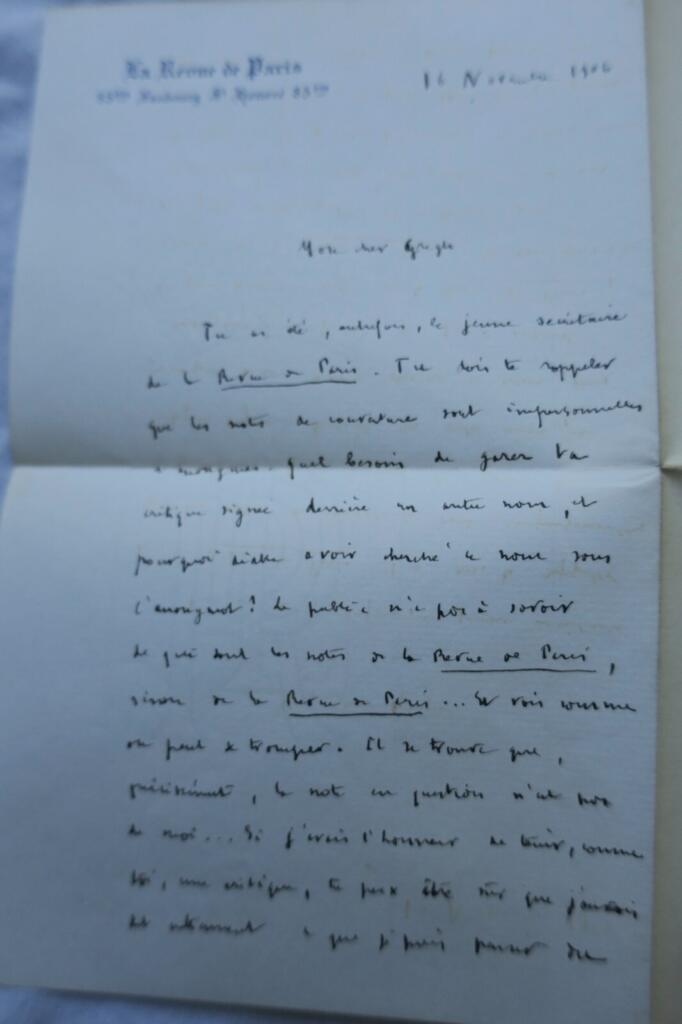 La Revue de Paris
85bis Faubourg St Honoré 85bis
16 Novembre 1906
Mon cher Gregh
Tu as été, autrefois, le jeune secrétaire
de la Revue de Paris. Tu dois te rappeler
que les notes de couverture sont impersonnelles
anonymes. Quel besoin de garer ta
critique signée derrière un autre nom, et
pourquoi diable avoir cherché ce nom sous
l'anonymat? Le public n'a pas à savoir
de qui sont les notes de la Revue de Paris,
sinon de la Revue de Paris... Et vois comme
on peut se tromper. Il se trouve que,
précisément, la note en question n'est pas
de moi... Si j'avais l'honneur de tenir, comme
toi, une critique, tu peux être sûr que jamais
ce que je puis penser du